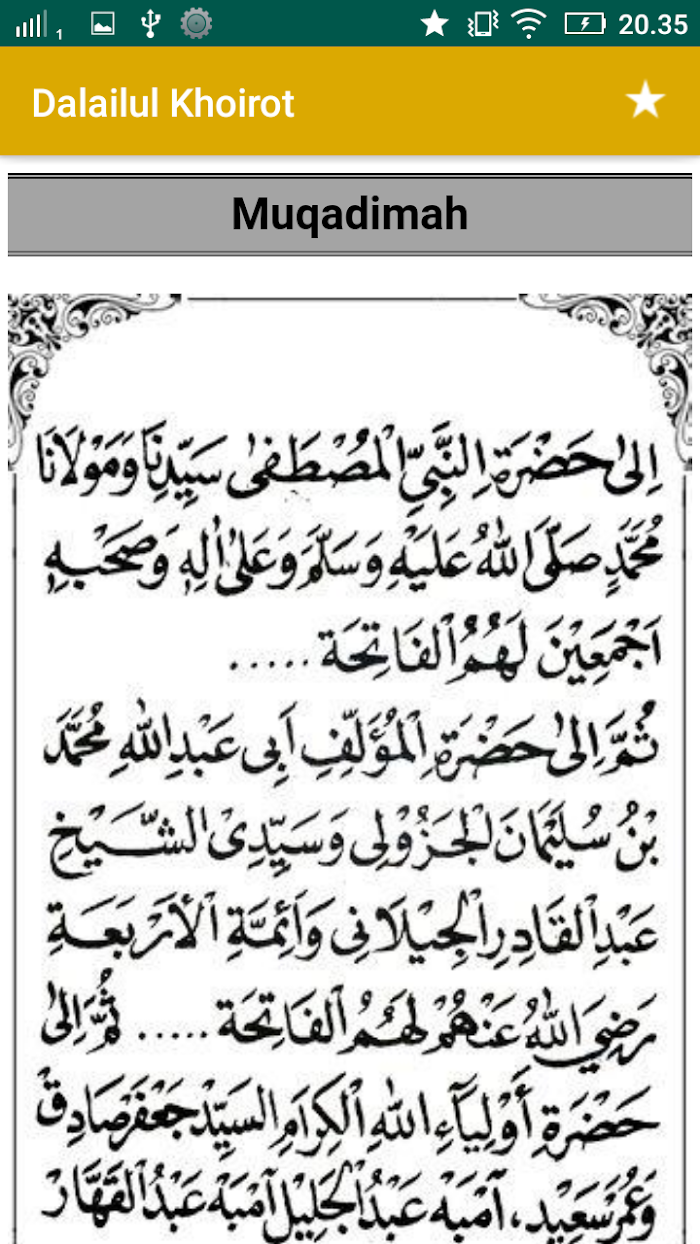 1
20.35
Dalailul Khoirot
Muqadimah
اِلىٰ حَضْرَةِ النَّبِيِّ الْمُصْطَفٰى سَيِّدِنَا وَمَوْلَانَا
مُحَمَّدٍ صَلَّى اللهُ عَلَيْهِ وَسَلَّمَ وَعَلىٰ اٰلِهٖ وَصَحْبِهٖ
اَجْمَعِيْنَ لَهُمُ الْفَاتِحَة .....
ثُمَّ اِلىٰ حَضْرَةِ الْمُؤَلِّفِ اَبِى عَبْدِ اللهِ مُحَمَّد
بْنُ سُلَيْمَانَ الْجَزُوْلِى وَسَيِّدِىْ الشَّيْخِ
عَبْدِ الْقَادِرِ الْجِيْلَانِى وَاَئِمَّةِ الْاَرْبَعَةِ
رَضِيَ اللهُ عَنْهُمْ لَهُمُ الْفَاتِحَة ..... ثُمَّ اِلىٰ
حَضْرَةِ أَوْلِيَآءِ اللهِ الْكِرَامِ السَيِّدْ جَعْفَرْ صَادِقْ
وَعُمَرْ سَعِيْد، آمْبَهْ عَبْدُ الْجَلِيْل آمْبَهْ عَبْدُ الْقَهَّارْ